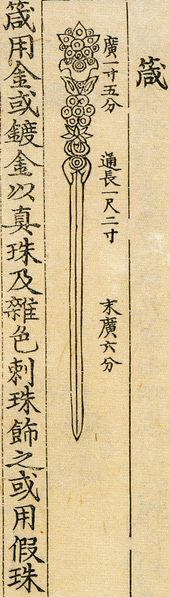 箴
廣一寸五分
通長一尺二寸
末廣六分
箴用金或鍍金以真珠及雜色刺珠飾之或用假珠